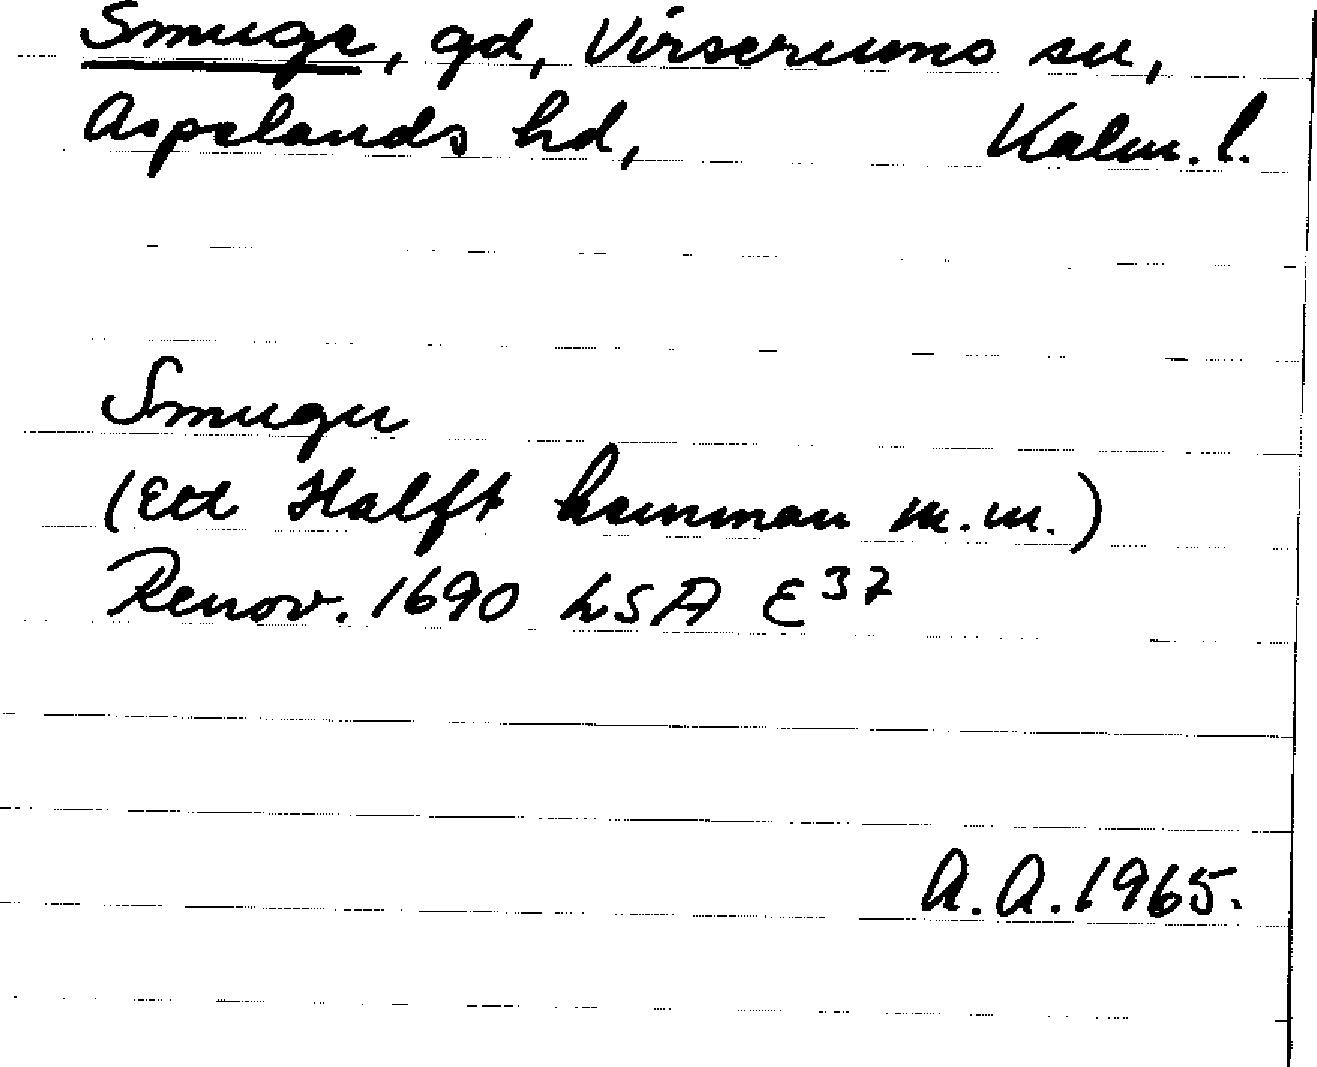 Smuge, gd, Virserums sn,
Aspelands hd, Kalm. l.
Smugu
(Ett Halft hemman m.m.)
Renov. 1690 LSA E37
A.A. 1965.